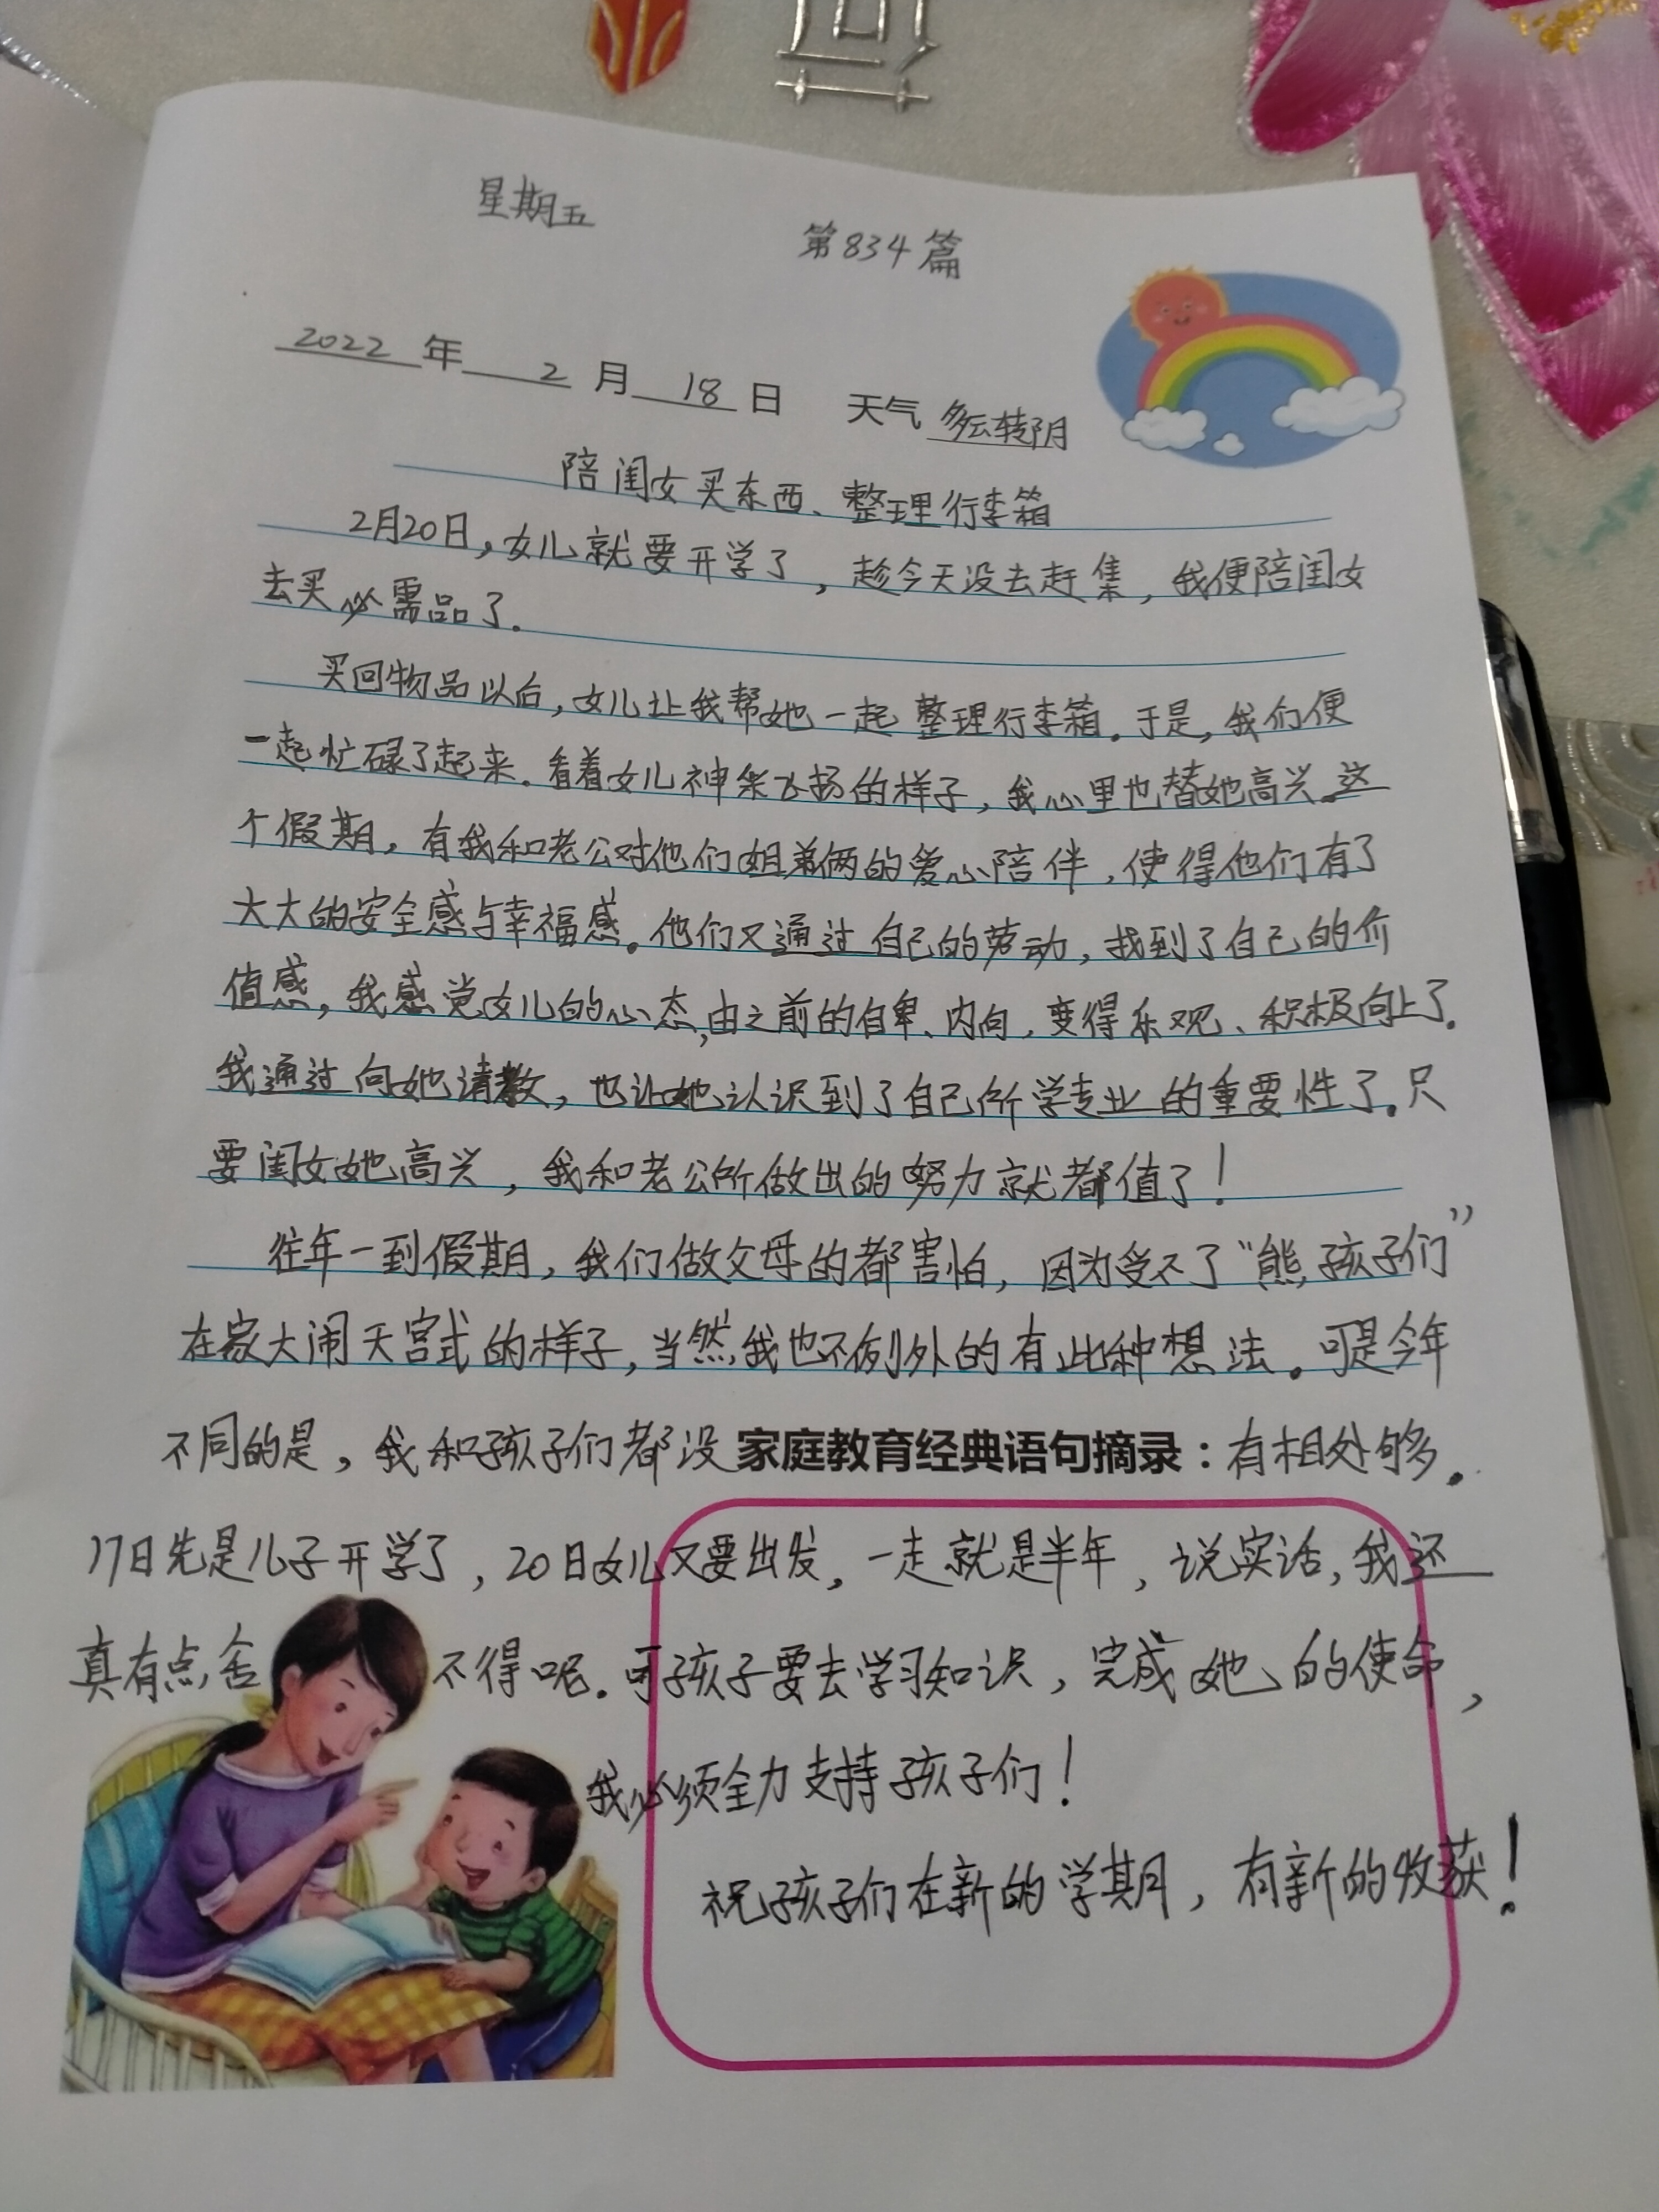 星期五 第834篇
2022年2月18日 天气 多云转阴
陪闺女买东西、整理行李箱
2月20日，女儿就要开学了，趁今天没去赶集，我便陪闺女
去买必需品了。
买回物品以后，女儿让我帮她一起整理行李箱。于是，我们便
一起忙碌了起来。看着女儿神采飞扬的样子，我心里也替她高兴。这
个假期，有我和老公对他们姐弟俩的爱心陪伴，使得他们有了
大大的安全感与幸福感。他们又通过自己的劳动，找到了自己的价
值感，我感觉女儿的心态，由之前的自卑、内向，变得乐观、积极向上了。
我通过向她请教，也让她认识到了自己所学专业的重要性了。只
要闺女她高兴，我和老公所做出的努力就都值了！
往年一到假期，我们做父母的都害怕，因为受不了“熊孩子们”
在家大闹天宫式的样子，当然我也不例外的有此种想法。可是今年
不同的是，我和孩子们都没 家庭教育经典语句摘录：有相处够。
17日先是儿子开学了，20日女儿又要出发，一走就是半年，说实话，我还
真有点舍不得呢。可孩子要去学习知识，完成她的使命，
我必须全力支持孩子们！
祝孩子们在新的学期，有新的收获！